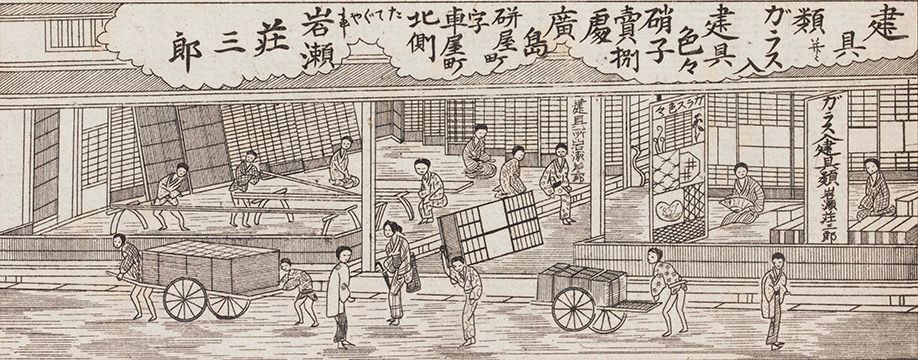 建具
類并ニ
ガラス入
建具
色々
硝子
賣捌
處
廣島
研屋町
字
車屋町
北側
たてぐや事
岩瀬
荘三郎
ガラス入建具類 岩瀬荘三郎
ガラス色々
建具所岩瀬荘三郎